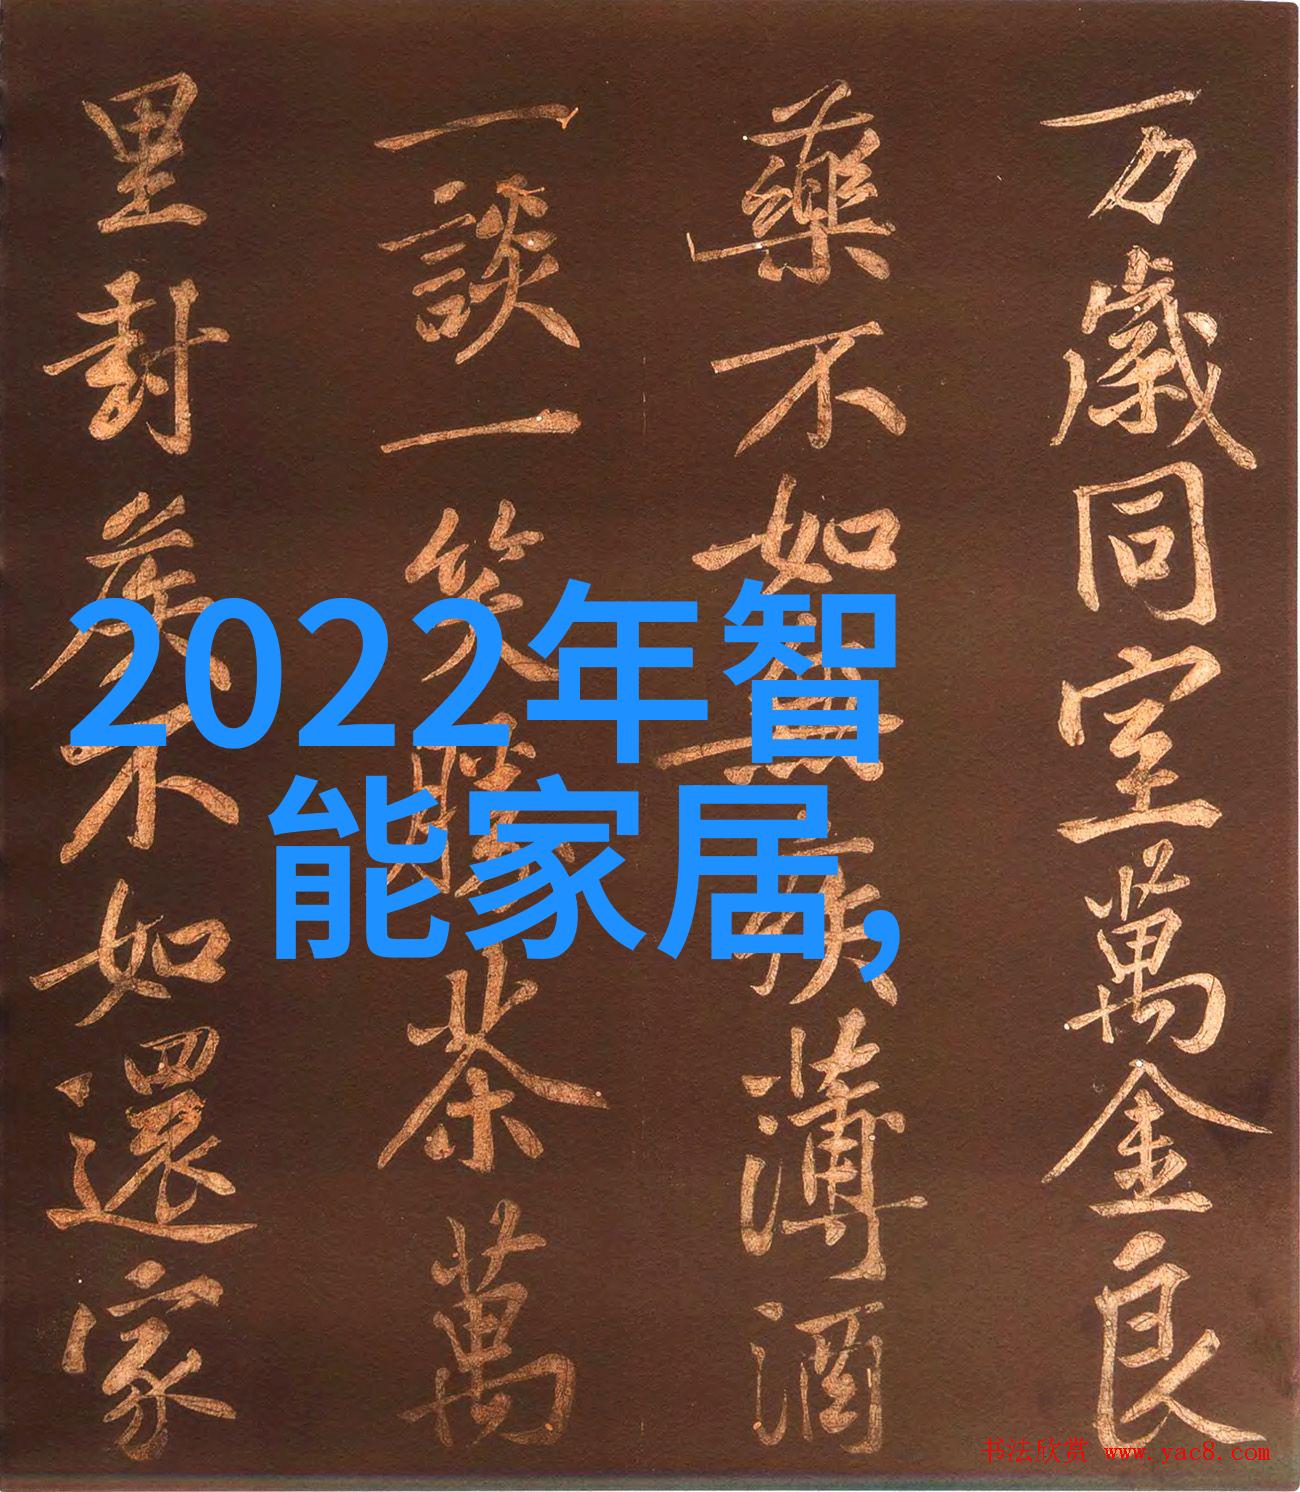 万歲同室萬金良
藥不如無疾薄酒
一談一笑勝茶萬
里封矦不如還家
2022年智
能家居,
书法欣赏 www.yac8.com